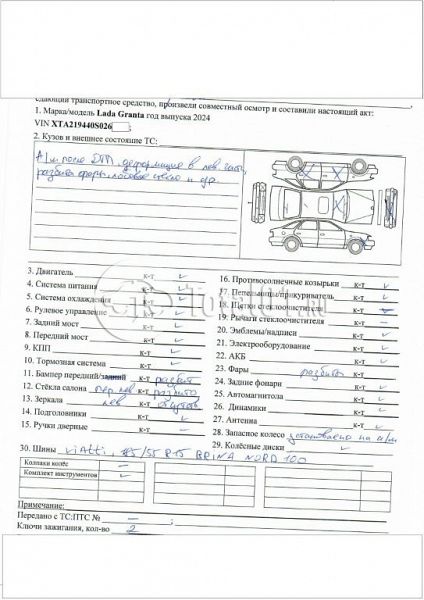 сдающий транспортное средство, произвели совместный осмотр и составили настоящий акт:
1. Марка/модель Lada Granta год выпуска 2024
VIN XTA219440S026
2. Кузов и внешнее состояние ТС:
А/м после ДТП, деформация в лев. части,
разбиты фары, лобовое стекло и др.
3. Двигатель к-т ✓
4. Система питания к-т ✓
5. Система охлаждения к-т ✓
6. Рулевое управление к-т ✓
7. Задний мост к-т ✓
8. Передний мост к-т ✓
9. КПП к-т ✓
10. Тормозная система к-т ✓
11. Бампер передний/задний разбит
12. Стёкла салона пер. лев к-т разбито
13. Зеркала лев к-т
14. Подголовники к-т ✓
15. Ручки дверные к-т ✓
16. Противосолнечные козырьки к-т ✓
17. Пепельницы/прикуриватель к-т ✓
18. Щетки стеклоочистителя к-т
19. Рычаги стеклоочистителя к-т
20. Эмблемы/надписи к-т ✓
21. Электрооборудование к-т ✓
22. АКБ к-т ✓
23. Фары разбиты к-т
24. Задние фонари к-т ✓
25. Автомагнитола к-т ✓
26. Динамики к-т ✓
27. Антенна к-т ✓
28. Запасное колесо установлено на а/м
29. Колёсные диски к-т ✓
30. Шины Viatti, 185/55 R15 BRINA NORD 100
Колпаки колёс –
Комплект инструментов ✓
Примечание:
Передано с ТС:ПТС № –
Ключи зажигания, кол-во 2